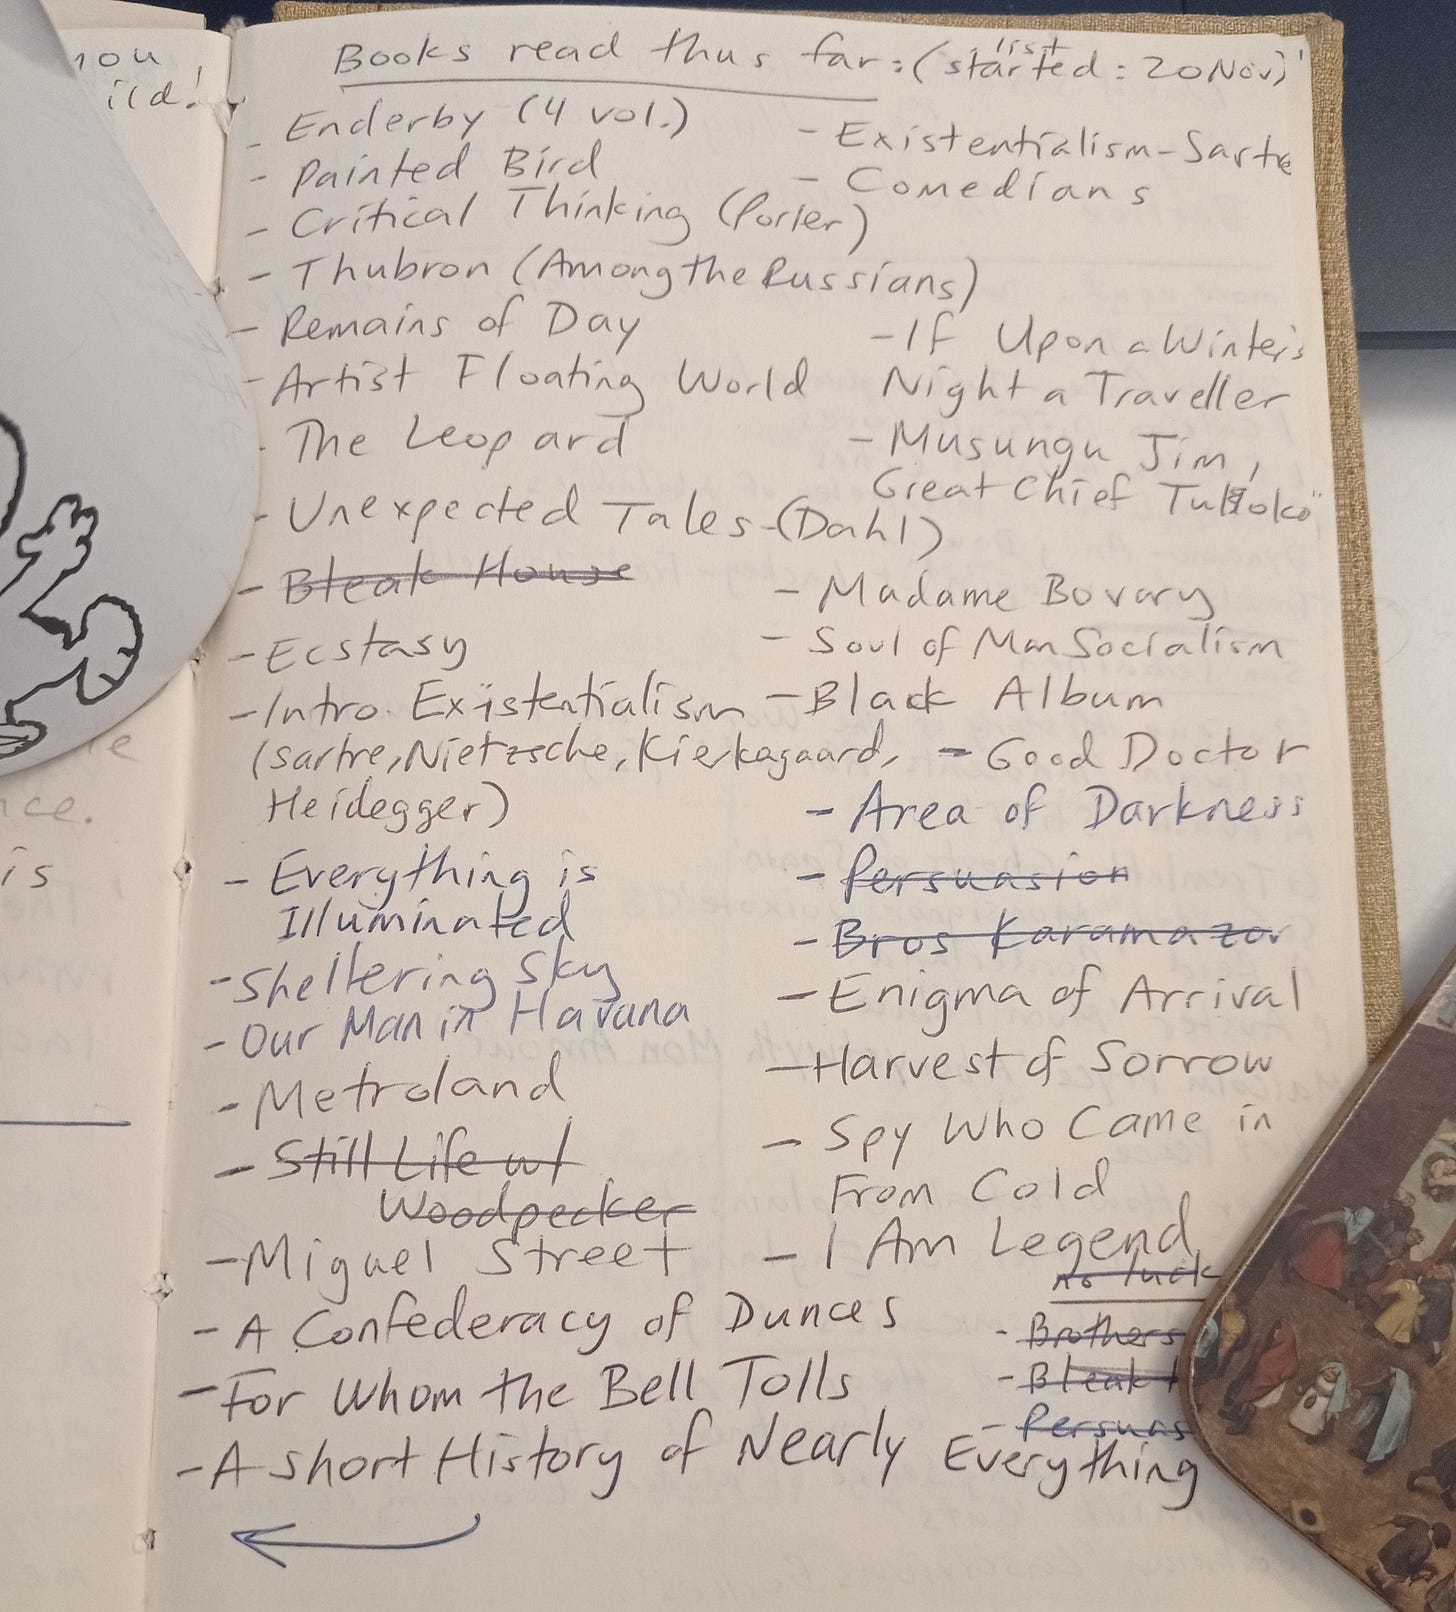 you
ild!
Books read thus far: (list started: 20 Nov)
- Enderby (4 vol.)
- Painted Bird
- Critical Thinking (Porter)
- Thubron (Among the Russians)
- Remains of Day
- Artist Floating World
- The Leopard
- Unexpected Tales - (Dahl)
- Bleak House
- Ecstasy
- Intro. Existentialism
(Sartre, Nietzsche, Kierkagaard,
Heidegger)
- Everything is
Illuminated
- Sheltering Sky
- Our Man in Havana
- Metroland
- Still Life w/
Woodpecker
- Miguel Street
- A Confederacy of Dunces
- For Whom the Bell Tolls
- A Short History of Nearly Everything
- Existentialism - Sartre
- Comedians
- If Upon a Winter's
Night a Traveller
- Musungu Jim,
Great Chief Tuloko
- Madame Bovary
- Soul of Man Socialism
- Black Album
- Good Doctor
- Area of Darkness
- Persuasion
- Bros Karamazov
- Enigma of Arrival
- Harvest of Sorrow
- Spy Who Came in
From Cold
- I Am Legend
no luck
- Brothers
- Bleak
- Persuas
nce.
is